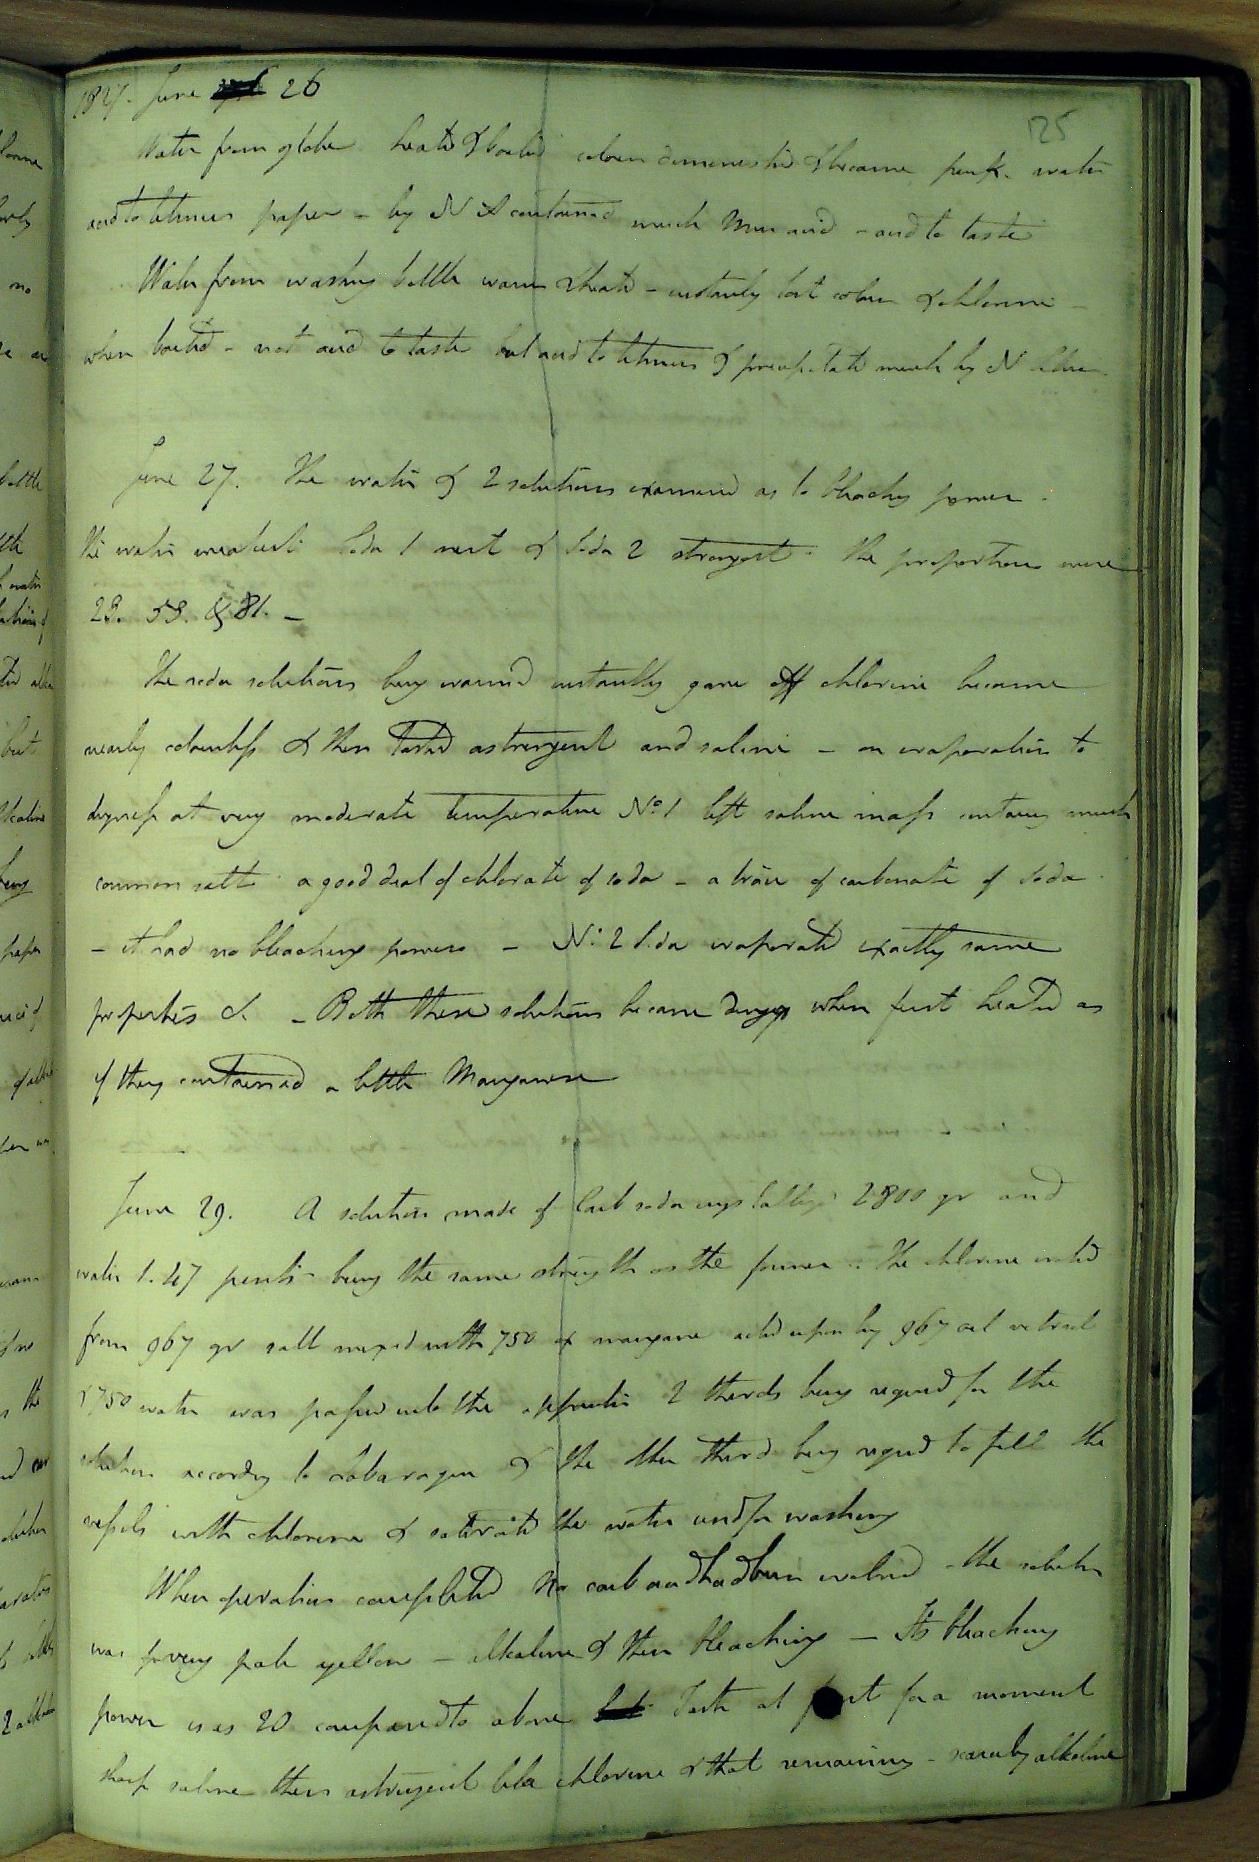 1827. June 26
125
Water from globe heated & boiled colour diminished & became pink. water
acid to litmus paper - by N S contained much Mur acid - acid to taste
Water from washing bottle warm & heated - instantly lost colour & chlorine -
when boiled - not acid to taste but acid to litmus & precipitated much by N
June 27. The water & 2 solutions examined as to bleaching power.
The water weakest Soda 1 next & Soda 2 strongest. The proportions were
23. 53. & 81. -
The soda solutions being warmed instantly gave off chlorine became
nearly colourless & then tasted astringent and saline - on evaporation to
dryness at very moderate temperature No 1 left saline mass containing much
common salt a good deal of chlorate of soda - a trace of carbonate of soda
- it had no bleaching powers - No 2 Soda evaporated exactly same
properties &c. - Both these solutions became dingy when first heated as
if they contained a little Manganese
June 29. A solution made of Carb soda crystallized 2800 gr and
water 1.47 pints being the same strength as the former. The chlorine evolved
from 967 gr salt mixed with 750 of mangane acted upon by 967 oil vitriol
& 750 water was passed into the 2 thirds being required for the
solution according to Labaraque & the other third being required to fill the
vessels with chlorine & saturate the water used for washing
When operation completed no carb acid had been evolved - the solution
was very pale yellow - alkaline & then bleaching - Its bleaching
power is as 20 compared to above Taste at first for a moment
sharp saline then astringent like chlorine & that remaining - scarcely alkaline